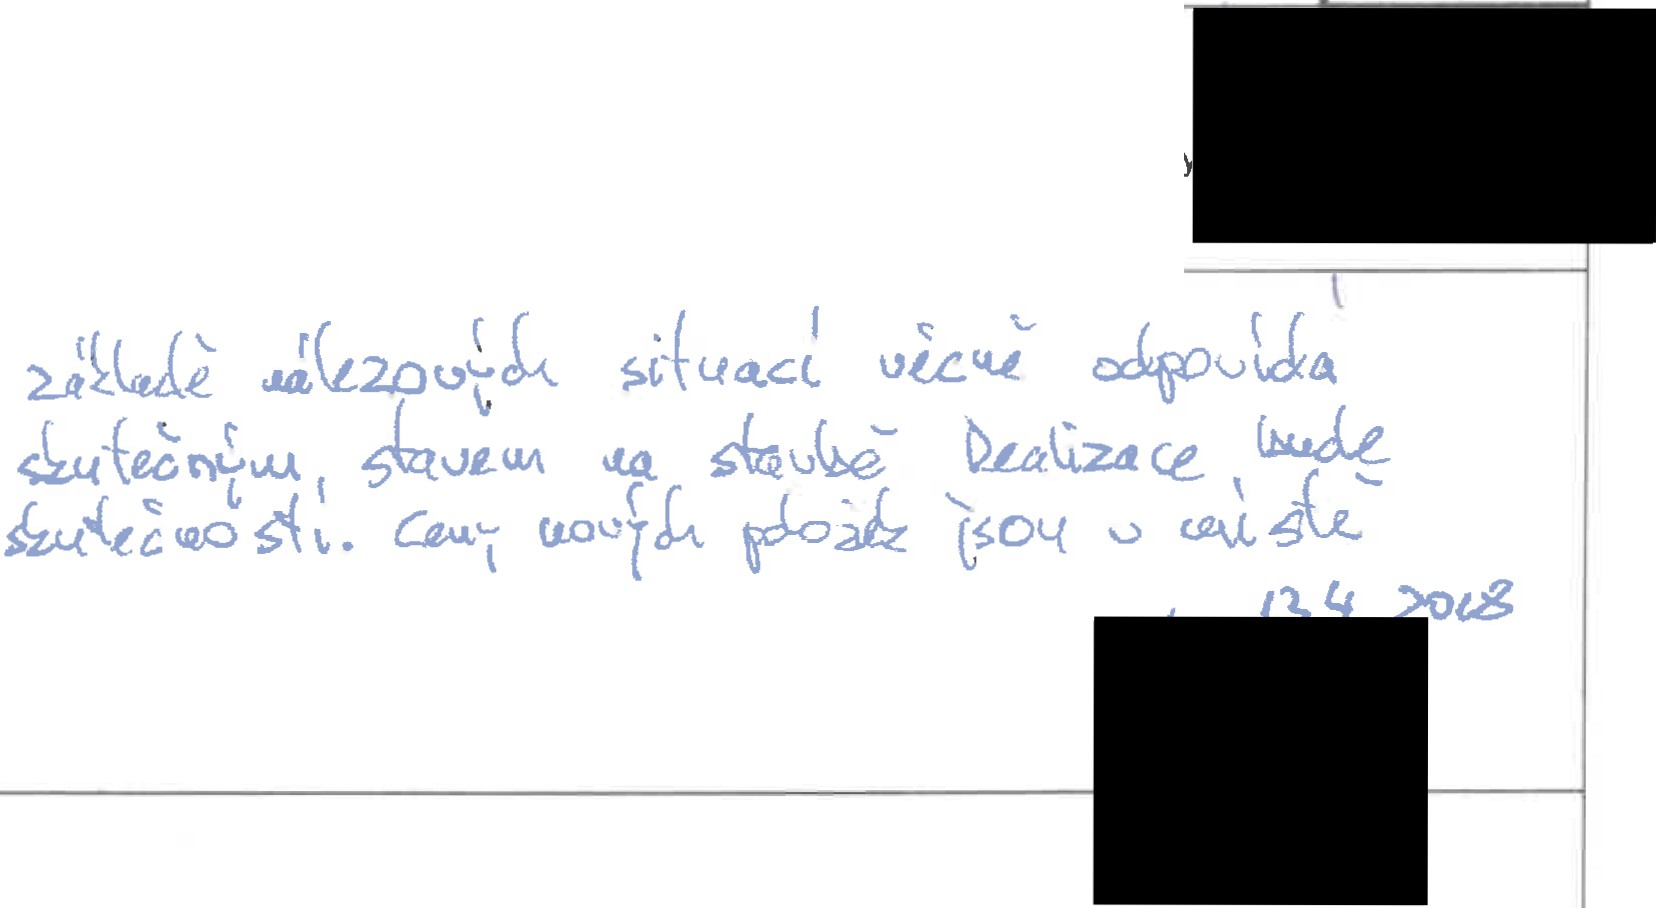 y
základě nálezových situací věcně odpovídá
skutečným, stavem na stavbě Realizace bude
skutečnosti. Ceny nových položek jsou v místě
13 4 2018